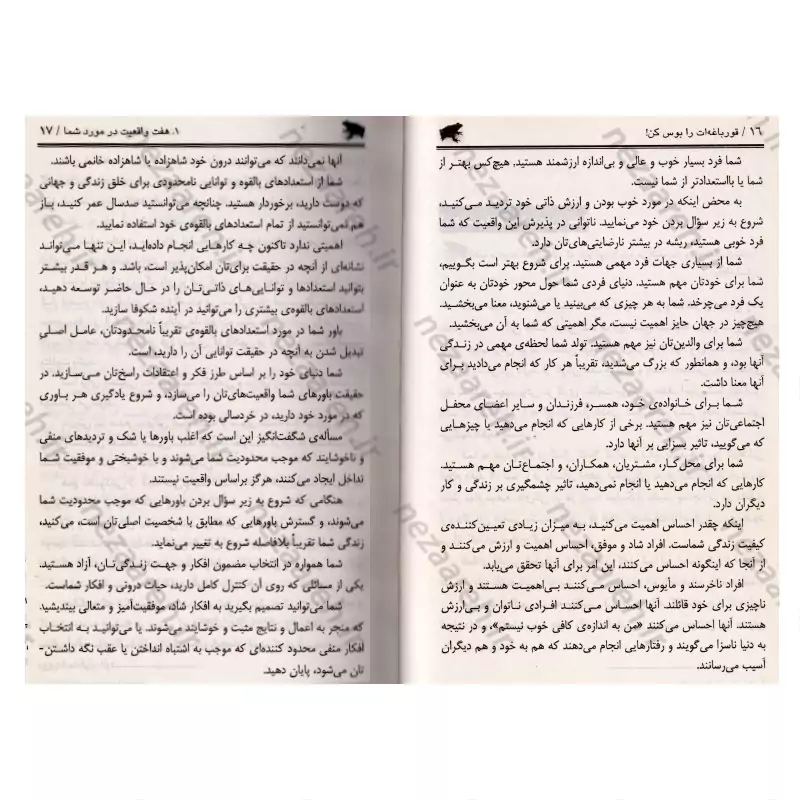 ۱۶ / قورباغه‌ات را بوس کن!
شما فرد بسیار خوب و عالی و بی‌اندازه ارزشمند هستید. هیچ‌کس بهتر از
شما یا بااستعدادتر از شما نیست.
به محض اینکه در مورد خوب بودن و ارزش ذاتی خود تردید می‌کنید،
شروع به زیر سؤال بردن خود می‌نمایید. ناتوانی در پذیرش این واقعیت که شما
فرد خوبی هستید، ریشه در بیشتر نارضایتی‌های‌تان دارد.
شما از بسیاری جهات فرد مهمی هستید. برای شروع بهتر است بگوییم،
شما برای خودتان مهم هستید. دنیای فردی شما حول محور خودتان به عنوان
یک فرد می‌چرخد. شما به هر چیزی که می‌بینید یا می‌شنوید، معنا می‌بخشید.
هیچ‌چیز در جهان حایز اهمیت نیست، مگر اهمیتی که شما به آن می‌بخشید.
شما برای والدین‌تان نیز مهم هستید. تولد شما لحظه‌ی مهمی در زندگی
آنها بود، و همانطور که بزرگ می‌شدید، تقریباً هر کار که انجام می‌دادید برای
آنها معنا داشت.
شما برای خانواده‌ی خود، همسر، فرزندان و سایر اعضای محفل
اجتماعی‌تان نیز مهم هستید. برخی از کارهایی که انجام می‌دهید یا چیزهایی
که می‌گویید، تاثیر بسزایی بر آنها دارد.
شما برای محل‌کار، مشتریان، همکاران، و اجتماع‌تان مهم هستید.
کارهایی که انجام می‌دهید یا انجام نمی‌دهید، تاثیر چشمگیری بر زندگی و کار
دیگران دارد.
اینکه چقدر احساس اهمیت می‌کنید، به میزان زیادی تعیین‌کننده‌ی
کیفیت زندگی شماست. افراد شاد و موفق، احساس اهمیت و ارزش می‌کنند و
از آنجا که اینگونه احساس می‌کنند، این امر برای آنها تحقق می‌یابد.
افراد ناخرسند و مأیوس، احساس می‌کنند بی‌اهمیت هستند و ارزش
ناچیزی برای خود قائلند. آنها احساس می‌کنند افرادی ناتوان و بی‌ارزش
هستند. آنها احساس می‌کنند «من به اندازه‌ی کافی خوب نیستم»، و در نتیجه
به دنیا ناسزا می‌گویند و رفتارهایی انجام می‌دهند که هم به خود و هم دیگران
آسیب می‌رسانند.
۱. هفت واقعیت در مورد شما / ۱۷
آنها نمی‌دانند که می‌توانند درون خود شاهزاده یا شاهزاده خانمی باشند.
شما از استعدادهای بالقوه و توانایی نامحدودی برای خلق زندگی و جهانی
که دوست دارید، برخوردار هستید. چنانچه می‌توانستید صدسال عمر کنید، باز
هم نمی‌توانستید از تمام استعدادهای بالقوه‌ی خود استفاده نمایید.
اهمیتی ندارد تاکنون چه کارهایی انجام داده‌اید، این تنها می‌تواند
نشانه‌ای از آنچه در حقیقت برای‌تان امکان‌پذیر است، باشد. و هر قدر بیشتر
بتوانید استعدادها و توانایی‌های ذاتی‌تان را در حال حاضر توسعه دهید،
استعدادهای بالقوه‌ی بیشتری را می‌توانید در آینده شکوفا سازید.
باور شما در مورد استعدادهای بالقوه‌ی تقریباً نامحدودتان، عامل اصلی
تبدیل شدن به آنچه در حقیقت توانایی آن را دارید، است.
شما دنیای خود را بر اساس طرز فکر و اعتقادات راسخ‌تان می‌سازید. در
حقیقت باورهای شما واقعیت‌های‌تان را می‌سازد، و شروع یادگیری هر باوری
که در مورد خود دارید، در خردسالی بوده است.
مسأله‌ی شگفت‌انگیز این است که اغلب باورها یا شک و تردیدهای منفی
و ناخوشایند که موجب محدودیت شما می‌شوند و با خوشبختی و موفقیت شما
تداخل ایجاد می‌کنند، هرگز براساس واقعیت نیستند.
هنگامی که شروع به زیر سؤال بردن باورهایی که موجب محدودیت شما
می‌شوند، و گسترش باورهایی که مطابق با شخصیت اصلی‌تان است، می‌کنید،
زندگی شما تقریباً بلافاصله شروع به تغییر می‌نماید.
شما همواره در انتخاب مضمون افکار و جهت زندگی‌تان، آزاد هستید.
یکی از مسائلی که روی آن کنترل کامل دارید، حیات درونی و افکار شماست.
شما می‌توانید تصمیم بگیرید به افکار شاد، موفقیت‌آمیز و متعالی بیندیشید
که منجر به اعمال و نتایج مثبت و خوشایند می‌شوند. یا می‌توانید به انتخاب
افکار منفی محدود کننده‌ای که موجب به اشتباه انداختن یا عقب نگه داشتن-
تان می‌شود، پایان دهید.